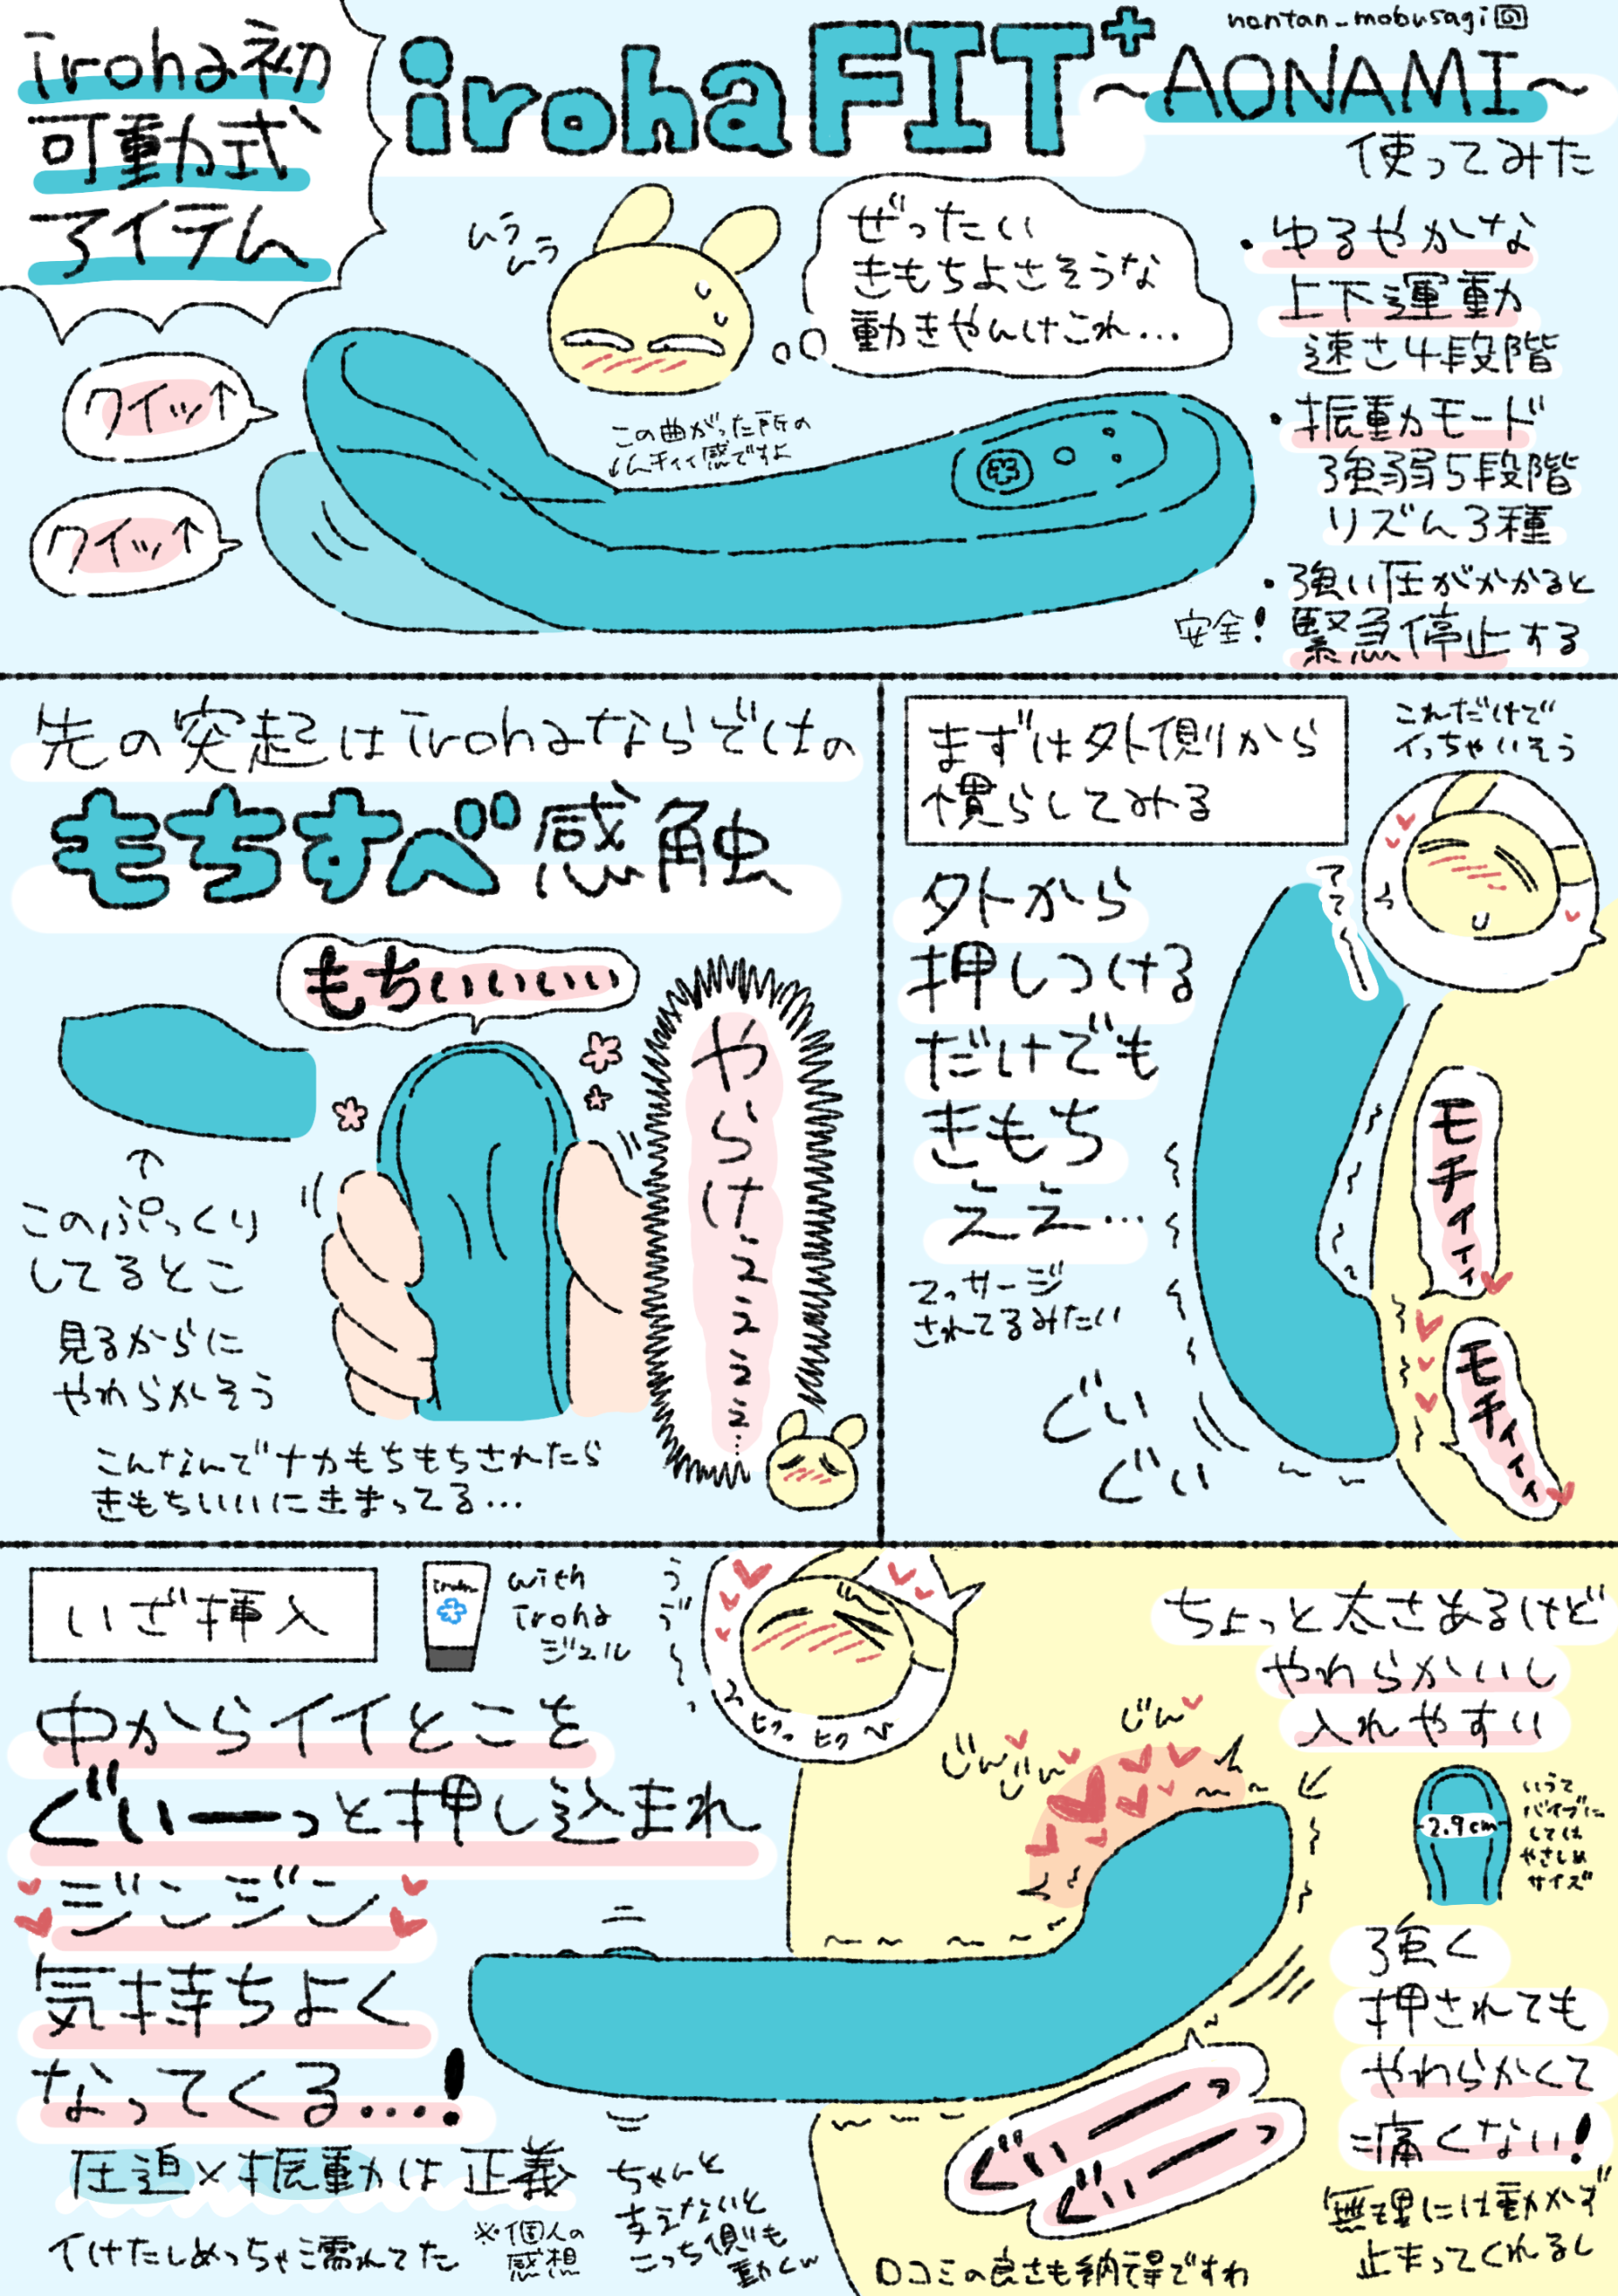 iroha初
可動式
アイテム
irohaFIT+
～AONAMI～
nontan_mobusagi回
使ってみた
ムラ
ムラ
ぜったい
きもちよさそうな
動きやんけこれ…
・ゆるやかな
上下運動
速さ4段階
・振動モード
強弱5段階
リズム3種
・強い圧がかかると
安全！緊急停止する
クイッ↑
クイッ↑
この曲がった所の
先の突起はirohaならではの
もちすべ感触
もちぃぃぃぃ
やらけぇぇぇぇ…
↑
このぷっくり
してるとこ
見るからに
やわらかそう
こんなんでナカもちもちされたら
きもちいいにきまってる…
まずは外側から
慣らしてみる
これだけで
イっちゃいそう
外から
押しつける
だけでも
きもち
ええ…
マッサージ
されてるみたい
ぐい
ぐい
モチィィィ
モチィィィ
いざ挿入
iroha
with
iroha
ジェル
中からイイとこを
ぐいーっと押し込まれ
ジンジン
気持ちよく
なってくる…！
圧迫×振動は正義
イけたしめっちゃ濡れてた
※個人の
感想
ちゃんと
支えないと
こっち側も
動くw
ヒクッ ヒクッ
じん
じんじん
ちょっと太さあるけど
やわらかいし
入れやすい
2.9cm
いうて
バイブに
しては
やさしめ
サイズ
強く
押されても
やわらかくて
痛くない！
無理には動かず
止まってくれるし
ぐいーっ
ぐいーっ
口コミの良さも納得ですわ